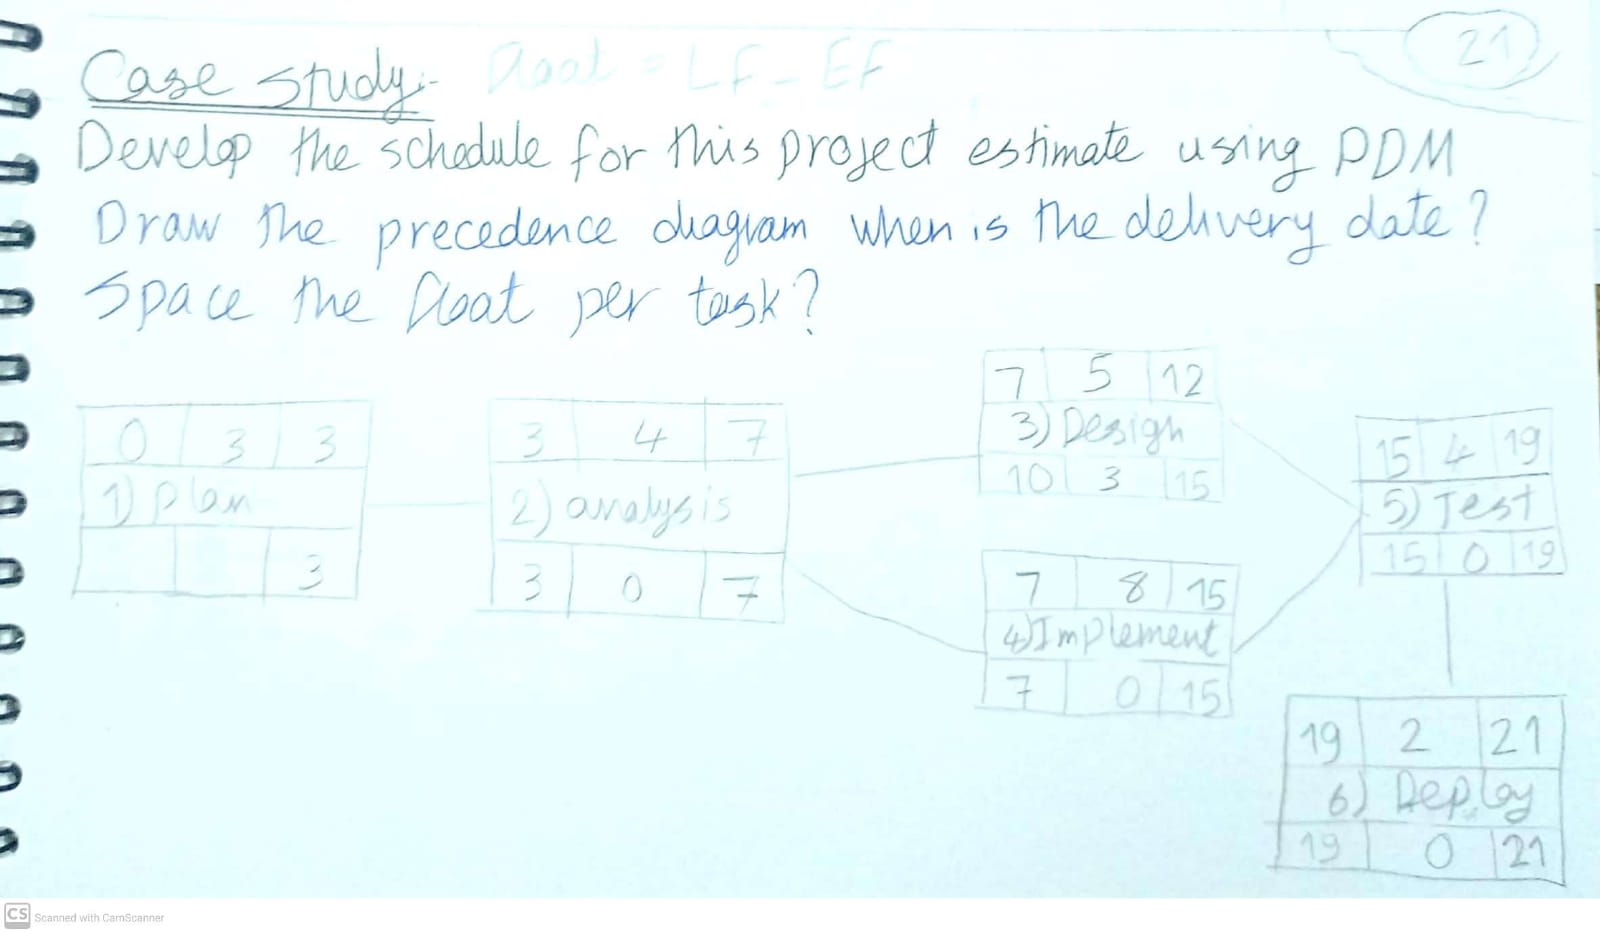 21
Case study:- Float = LF - EF
Develop the schedule for this project estimate using PDM
Draw the precedence diagram when is the delivery date?
Space the float per task?
0 3 3
1) plan
3
3 4 7
2) analysis
3 0 7
7 5 12
3) Design
10 3 15
7 8 15
4) Implement
7 0 15
15 4 19
5) Test
15 0 19
19 2 21
6) Deploy
19 0 21
CS Scanned with CamScanner